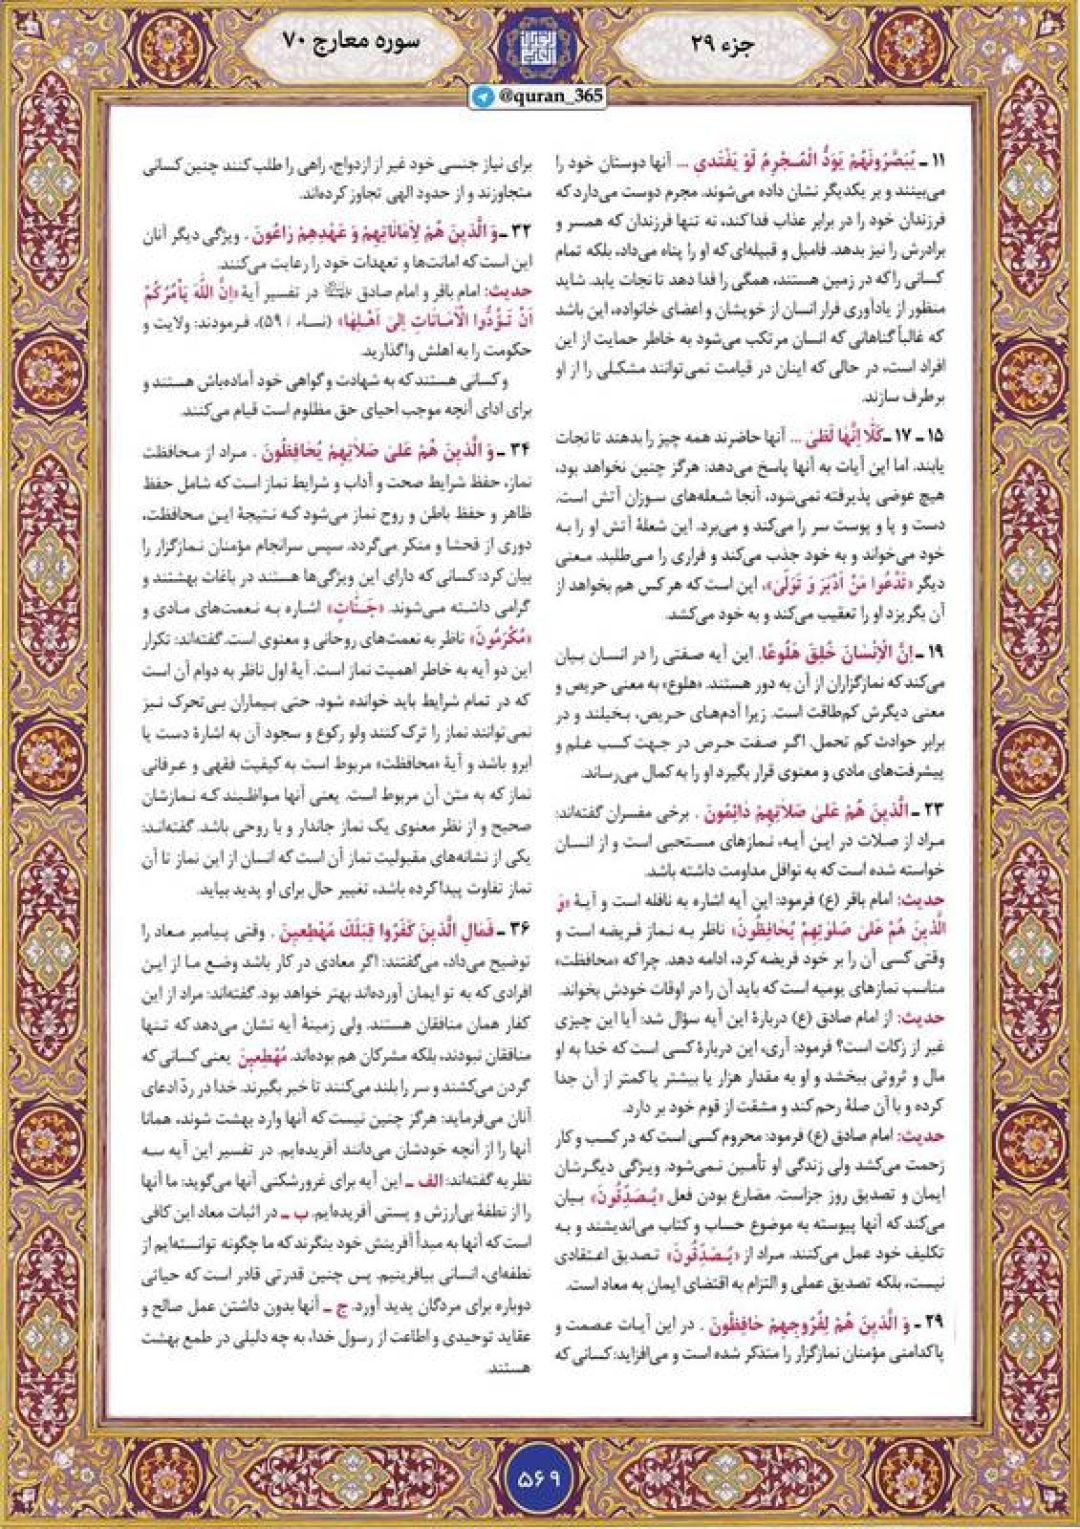 جزء ۲۹
سوره معارج ۷۰
@quran_365
۱۱ ـ یُبَصَّرُونَهُم یَوَدُّ الْمُجْرِمُ لَوْ یَفْتَدی ... آنها دوستان خود را
می‌بینند و بر یکدیگر نشان داده می‌شوند. مجرم دوست می‌دارد که
فرزندان خود را در برابر عذاب فدا کند، نه تنها فرزندان که همسر و
برادرش را نیز بدهد. فامیل و قبیله‌ای که او را پناه می‌داد، بلکه تمام
کسانی را که در زمین هستند، همگی را فدا دهد تا نجات یابد. شاید
منظور از یادآوری فرار انسان از خویشان و اعضای خانواده، این باشد
که غالباً گناهانی که انسان مرتکب می‌شود به خاطر حمایت از این
افراد است، در حالی که اینان در قیامت نمی‌توانند مشکلی را از او
برطرف سازند.
۱۵ ـ ۱۷ ـ کَلّا اِنَّها لَظیٰ ... آنها حاضرند همه چیز را بدهند تا نجات
یابند. اما این آیات به آنها پاسخ می‌دهد: هرگز چنین نخواهد بود،
هیچ عوضی پذیرفته نمی‌شود، آنجا شعله‌های سوزان آتش است.
دست و پا و پوست سر را می‌کند و می‌برد. این شعلهٔ آتش او را به
خود می‌خواند و به خود جذب می‌کند و فراری را می‌طلبد. معنی
دیگر «تَدْعُوا مَنْ اَدْبَرَ وَ تَوَلّیٰ»، این است که هر کس هم بخواهد از
آن بگریزد او را تعقیب می‌کند و به خود می‌کشد.
۱۹ ـ اِنَّ الْاِنْسانَ خُلِقَ هَلُوعًا. این آیه صفتی را در انسان بیان
می‌کند که نمازگزاران از آن به دور هستند. «هلوع» به معنی حریص و
معنی دیگرش کم‌طاقت است. زیرا آدم‌های حریص، بخیلند و در
برابر حوادث کم تحمل. اگر صفت حرص در جهت کسب علم و
پیشرفت‌های مادی و معنوی قرار بگیرد او را به کمال می‌رساند.
۲۳ ـ الَّذینَ هُمْ عَلیٰ صَلاتِهِمْ دائِمُونَ . برخی مفسران گفته‌اند:
مراد از صلات در این آیه، نمازهای مستحبی است و از انسان
خواسته شده است که به نوافل مداومت داشته باشد.
حدیث: امام باقر (ع) فرمود: این آیه اشاره به نافله است و آیهٔ «وَ
الَّذینَ هُمْ عَلیٰ صَلوٰتِهِمْ یُحافِظُونَ» ناظر به نماز فریضه است و
وقتی کسی آن را بر خود فریضه کرد، ادامه دهد. چرا که «محافظت»
مناسب نمازهای یومیه است که باید آن را در اوقات خودش بخواند.
حدیث: از امام صادق (ع) دربارهٔ این آیه سؤال شد: آیا این چیزی
غیر از زکات است؟ فرمود: آری، این دربارهٔ کسی است که خدا به او
مال و ثروتی ببخشد و او به مقدار هزار یا بیشتر یا کمتر از آن جدا
کرده و با آن صلهٔ رحم کند و مشقت از قوم خود بر دارد.
حدیث: امام صادق (ع) فرمود: محروم کسی است که در کسب و کار
زحمت می‌کشد ولی زندگی او تأمین نمی‌شود. ویژگی دیگرشان
ایمان و تصدیق روز جزاست. مضارع بودن فعل «یُصَدِّقُونَ» بیان
می‌کند که آنها پیوسته به موضوع حساب و کتاب می‌اندیشند و به
تکلیف خود عمل می‌کنند. مراد از «یُصَدِّقُونَ» تصدیق اعتقادی
نیست، بلکه تصدیق عملی و التزام به اقتضای ایمان به معاد است.
۲۹ ـ وَ الَّذینَ هُمْ لِفُرُوجِهِمْ حافِظُونَ . در این آیات عصمت و
پاکدامنی مؤمنان نمازگزار را متذکر شده است و می‌افزاید: کسانی که
برای نیاز جنسی خود غیر از ازدواج، راهی را طلب کنند چنین کسانی
متجاوزند و از حدود الهی تجاوز کرده‌اند.
۳۲ ـ وَ الَّذینَ هُمْ لِاَماناتِهِمْ وَ عَهْدِهِمْ راعُونَ . ویژگی دیگر آنان
این است که امانت‌ها و تعهدات خود را رعایت می‌کنند.
حدیث: امام باقر و امام صادق در تفسیر آیهٔ «اِنَّ اللّٰهَ یَأْمُرُکُمْ
اَنْ تُؤَدُّوا الْاَماناتِ اِلیٰ اَهْلِها» (نساء / ۵۹)، فرمودند: ولایت و
حکومت را به اهلش واگذارید.
و کسانی هستند که به شهادت و گواهی خود آماده‌باش هستند و
برای ادای آنچه موجب احیای حق مظلوم است قیام می‌کنند.
۳۴ ـ وَ الَّذینَ هُمْ عَلیٰ صَلاتِهِمْ یُحافِظُونَ . مراد از محافظت
نماز، حفظ شرایط صحت و آداب و شرایط نماز است که شامل حفظ
ظاهر و حفظ باطن و روح نماز می‌شود که نتیجهٔ این محافظت،
دوری از فحشا و منکر می‌گردد. سپس سرانجام مؤمنان نمازگزار را
بیان کرد: کسانی که دارای این ویژگی‌ها هستند در باغات بهشتند و
گرامی داشته می‌شوند. «جَنّاتٍ» اشاره به نعمت‌های مادی و
«مُکْرَمُونَ» ناظر به نعمت‌های روحانی و معنوی است. گفته‌اند: تکرار
این دو آیه به خاطر اهمیت نماز است. آیهٔ اول ناظر به دوام آن است
که در تمام شرایط باید خوانده شود. حتی بیماران بی‌تحرک نیز
نمی‌توانند نماز را ترک کنند ولو رکوع و سجود آن به اشارهٔ دست یا
ابرو باشد و آیهٔ «محافظت» مربوط است به کیفیت فقهی و عرفانی
نماز که به متن آن مربوط است. یعنی آنها مواظبند که نمازشان
صحیح و از نظر معنوی یک نماز جاندار و با روحی باشد. گفته‌اند:
یکی از نشانه‌های مقبولیت نماز آن است که انسان از این نماز تا آن
نماز تفاوت پیدا کرده باشد، تغییر حال برای او پدید بیاید.
۳۶ ـ فَمالِ الَّذینَ کَفَرُوا قِبَلَكَ مُهْطِعینَ . وقتی پیامبر معاد را
توضیح می‌داد، می‌گفتند: اگر معادی در کار باشد وضع ما از این
افرادی که به تو ایمان آورده‌اند بهتر خواهد بود. گفته‌اند: مراد از این
کفار همان منافقان هستند. ولی زمینهٔ آیه نشان می‌دهد که تنها
منافقان نبودند، بلکه مشرکان هم بوده‌اند. مُهْطِعینَ یعنی کسانی که
گردن می‌کشند و سر را بلند می‌کنند تا خبر بگیرند. خدا در ردّ ادعای
آنان می‌فرماید: هرگز چنین نیست که آنها وارد بهشت شوند، همانا
آنها را از آنچه خودشان می‌دانند آفریده‌ایم. در تفسیر این آیه سه
نظریه گفته‌اند: الف ـ این آیه برای غرورشکنی آنها می‌گوید: ما آنها
را از نطفهٔ بی‌ارزش و پستی آفریده‌ایم. ب ـ در اثبات معاد این کافی
است که آنها به مبدأ آفرینش خود بنگرند که ما چگونه توانسته‌ایم از
نطفه‌ای، انسانی بیافرینیم. پس چنین قدرتی قادر است که حیاتی
دوباره برای مردگان پدید آورد. ج ـ آنها بدون داشتن عمل صالح و
عقاید توحیدی و اطاعت از رسول خدا، به چه دلیلی در طمع بهشت
هستند.
۵۶۹